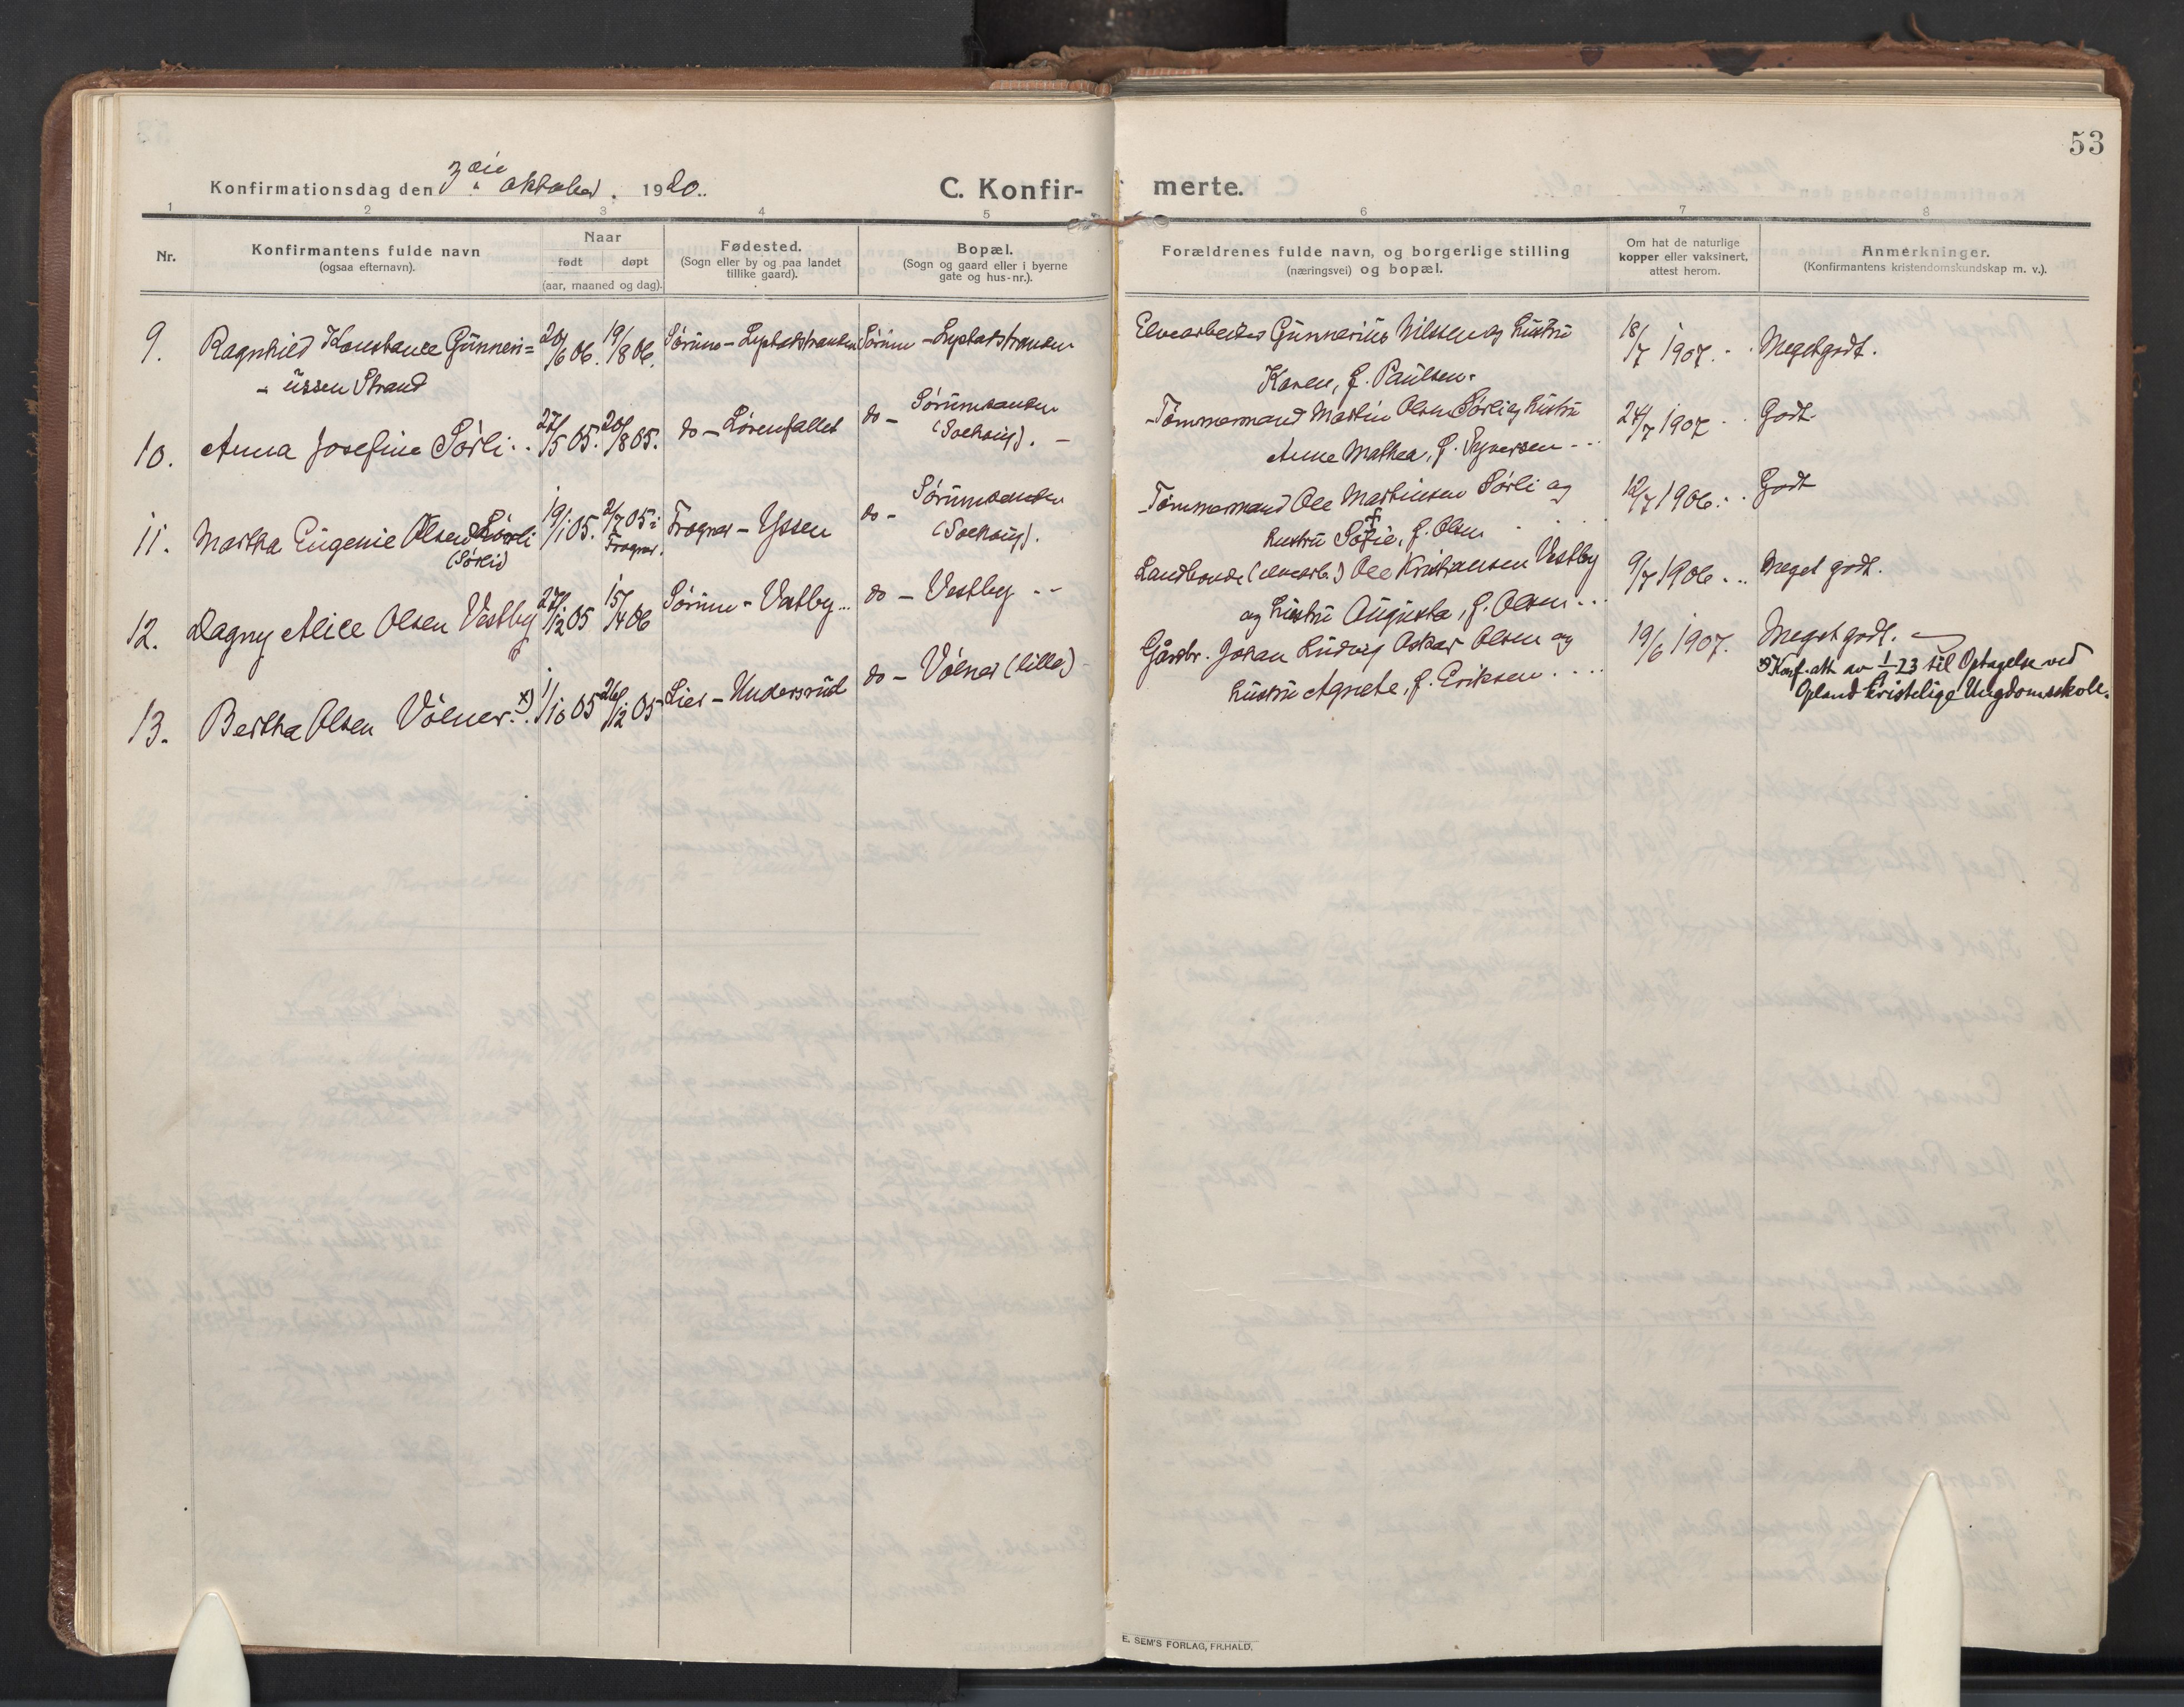 53
Konfirmationsdag den 3die oktober. 1920.
C. Konfir-
merte.
1 2 3 4 5 6 7 8
Nr.
Konfirmantens fulde navn
(ogsaa efternavn).
Naar
født døpt
(aar, maaned og dag).
Fødested.
(Sogn eller by og paa landet
tillike gaard).
Bopæl.
(Sogn og gaard eller i byerne
gate og hus-nr.).
Forældrenes fulde navn, og borgerlige stilling
(næringsvei) og bopæl.
Om hat de naturlige
kopper eller vaksinert,
attest herom.
Anmerkninger.
(Konfirmantens kristendomskundskap m. v.).
9. Ragnhild Konstance Gunneri= 20/6 06. 19/8 06. Sørum - Sørum - Elvearbeider Gunnerius Nilssen og hustru 18/7 1907. Meget godt.
- ussen Strand Karen, f. Paulsen.
10. Anna Josefine Sørli.. 27/5 05. 20/8 05. do - Lørenfallet do - Sørumsanden Tømmermand Martin Olsen Sørli og hustru 24/7 1907 Godt
Anne Mathea, f. Syversen
11. Martha Eugenie Olsen Sørli 19/1 05. 2/7 05 i Frogner - Yssen do - Sørumsanden Tømmermand Ole Martinsen Sørli og 12/7 1906. Godt
(Sørli) Frogner. hustru Sofie, f. Olsen
12. Dagny Alice Olsen Vestby 27/12 05 15/4 06 Sørum - Vestby... do - Vestby -- Landbonde (elvearb.) Ole Kristiansen Vestby 9/7 1906 Meget godt.
og hustru Augusta, f. Olsen
13. Bertha Olsen Vølner. x) 1/10 05 26/12 05 Lier - Undersrud do - Vølner (lille) Gårdbr. Johan Ludvig Oskar Olsen og 19/6 1907. Meget godt.
hustru Agnete, f. Eriksen
x) Konf. att. av 23 til Optagelse ved
kristelige Ungdomsskole.
E. SEM'S FORLAG, FR.HALD.